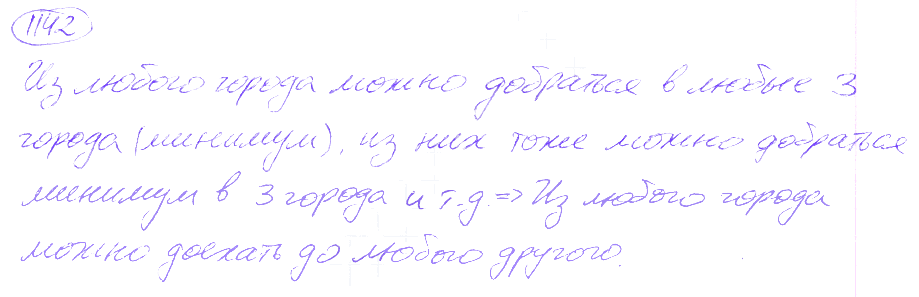 1142
Из любого города можно добраться в любые 3
города (минимум), из них тоже можно добраться
минимум в 3 города и т.д. => Из любого города
можно доехать до любого другого.